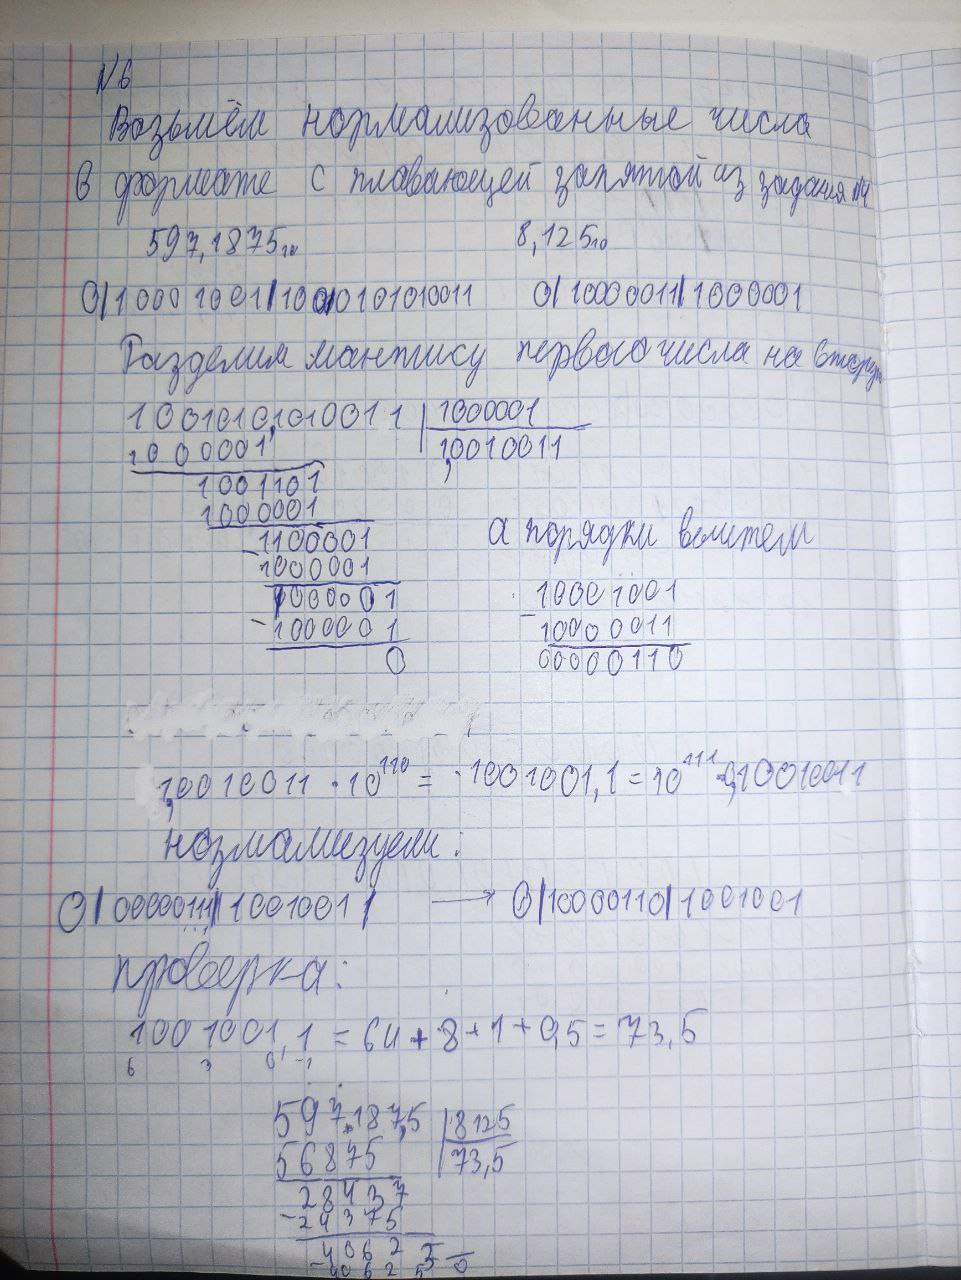 N6
Возьмём нормализованные числа
в формате с плавающей запятой из задания N4
597,1875₁₀ 8,125₁₀
0|10001001|1001010101010011 0|10000011|1000001
Разделим мантису первого числа на вторую
1001010,1010011 |1000001
1000001 1,0010011
1001101
1000001
1100001
-1000001
1000001
-1000001
0
а порядки вычтем
-10001001
10000011
00000110
1,0010011 · 10¹¹⁰ = 1001001,1 = 10¹¹¹ · 0,10010011
нозмализуем:
0|00000111|1001001| → 0|10000110|1001001
проверка:
1001001,1 = 64 + 8 + 1 + 0,5 = 73,5
6 3 0 -1
597,187,5 |8125
56875 73,5
28437
-24375
40625
-40625
0